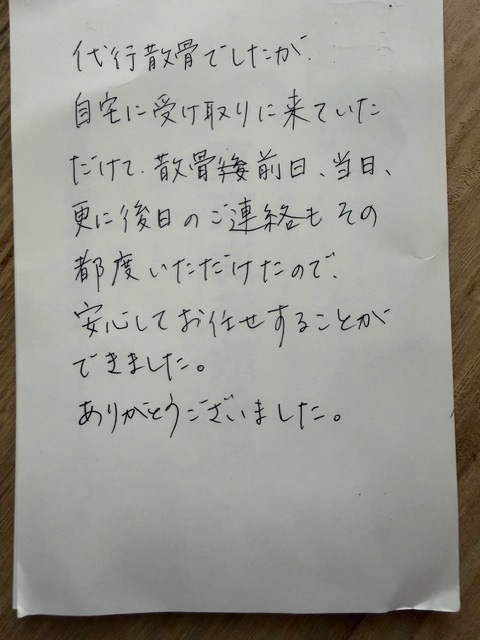 代行散骨でしたが、
自宅に受け取りに来ていた
だけて、散骨前日、当日、
更に後日のご連絡もその
都度いただけたので、
安心してお任せすることが
できました。
ありがとうございました。